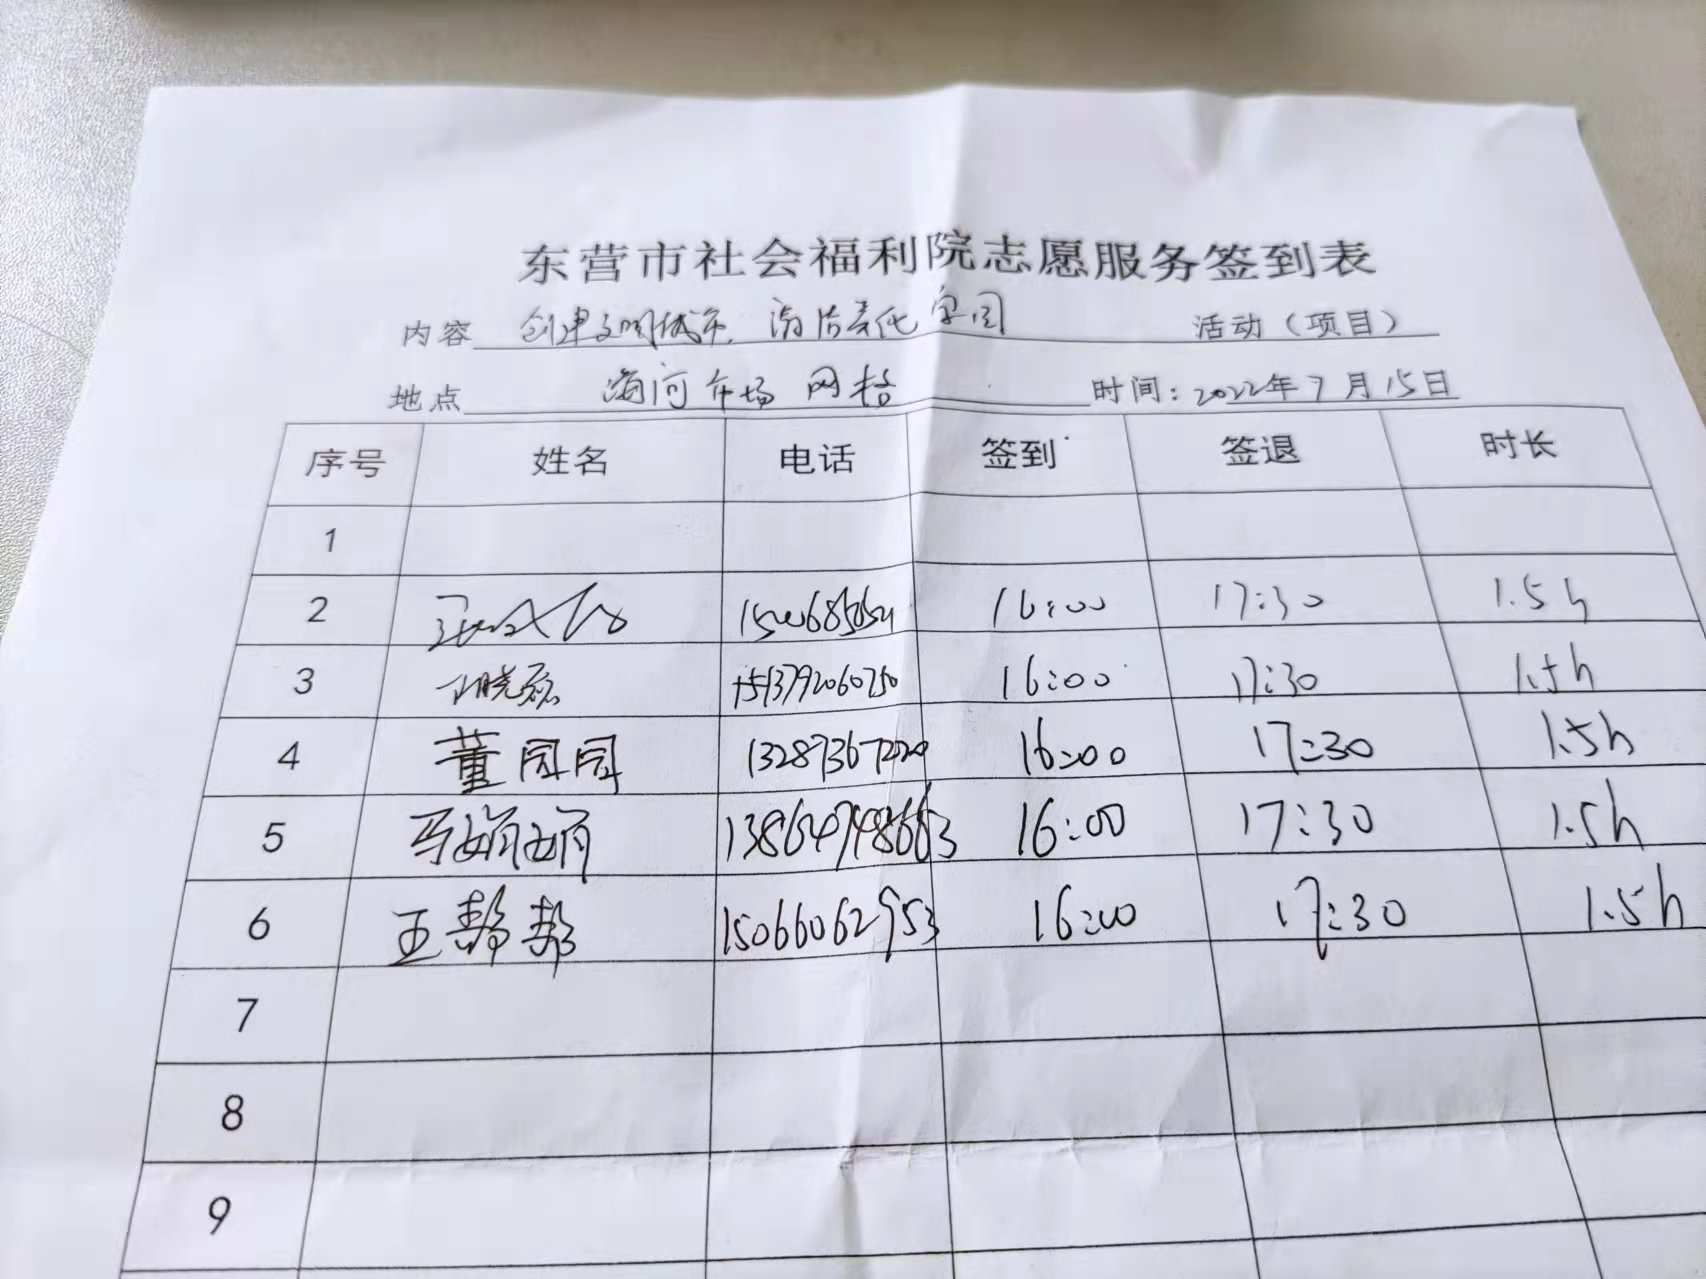 东营市社会福利院志愿服务签到表
内容 创建文明城市、清洁美化家园 活动（项目）
地点 海河市场网格 时间：2022年7月15日
序号 姓名 电话 签到 签退 时长
1
2 16:00 17:30 1.5h
3 16:00 17:30 1.5h
4 董同同 13287367220 16:00 17:30 1.5h
5 马娟娟 13864748663 16:00 17:30 1.5h
6 王帮帮 15066062953 16:00 17:30 1.5h
7
8
9